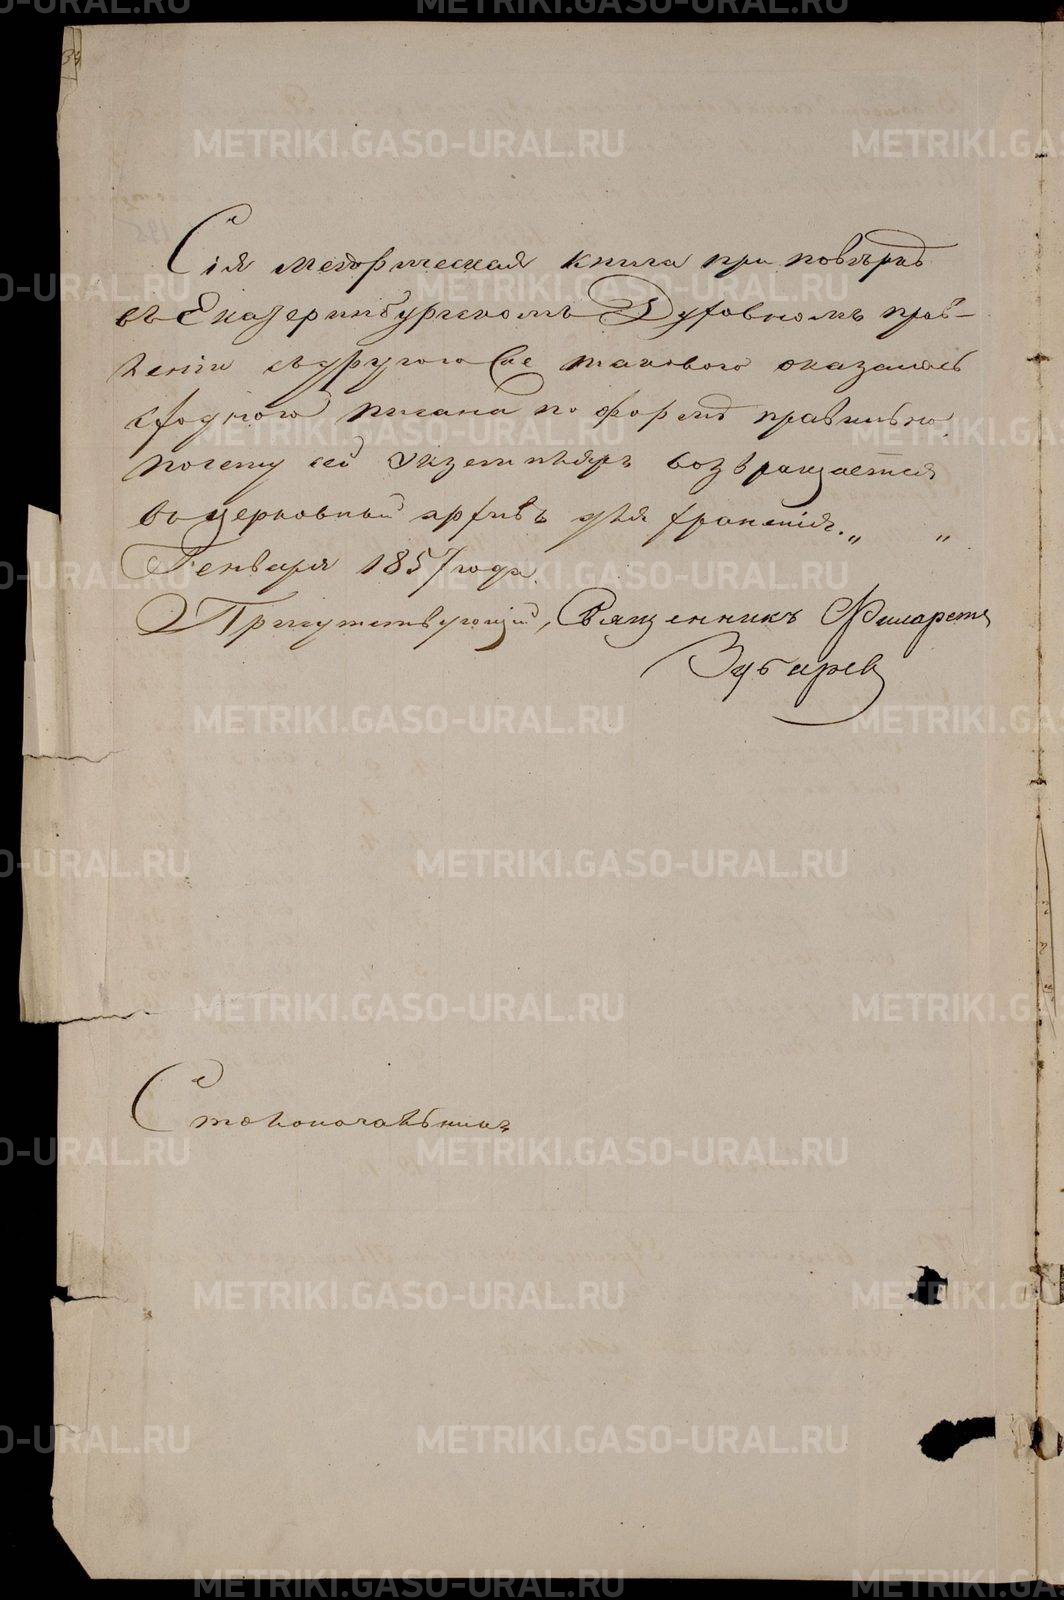 Сія метрическая книга при повѣркѣ
въ Екатеринбургскомъ Духовномъ прав-
леніи съ другою оказалась
сходною писана по формѣ правильно
почему сей экземпляръ возвращается
въ церковный архивъ для храненія. „ „
Генваря 1857 года.
Присутствующій, Священникъ Филаретъ
Зубаревъ
Столоначальникъ
METRIKI.GASO-URAL.RU